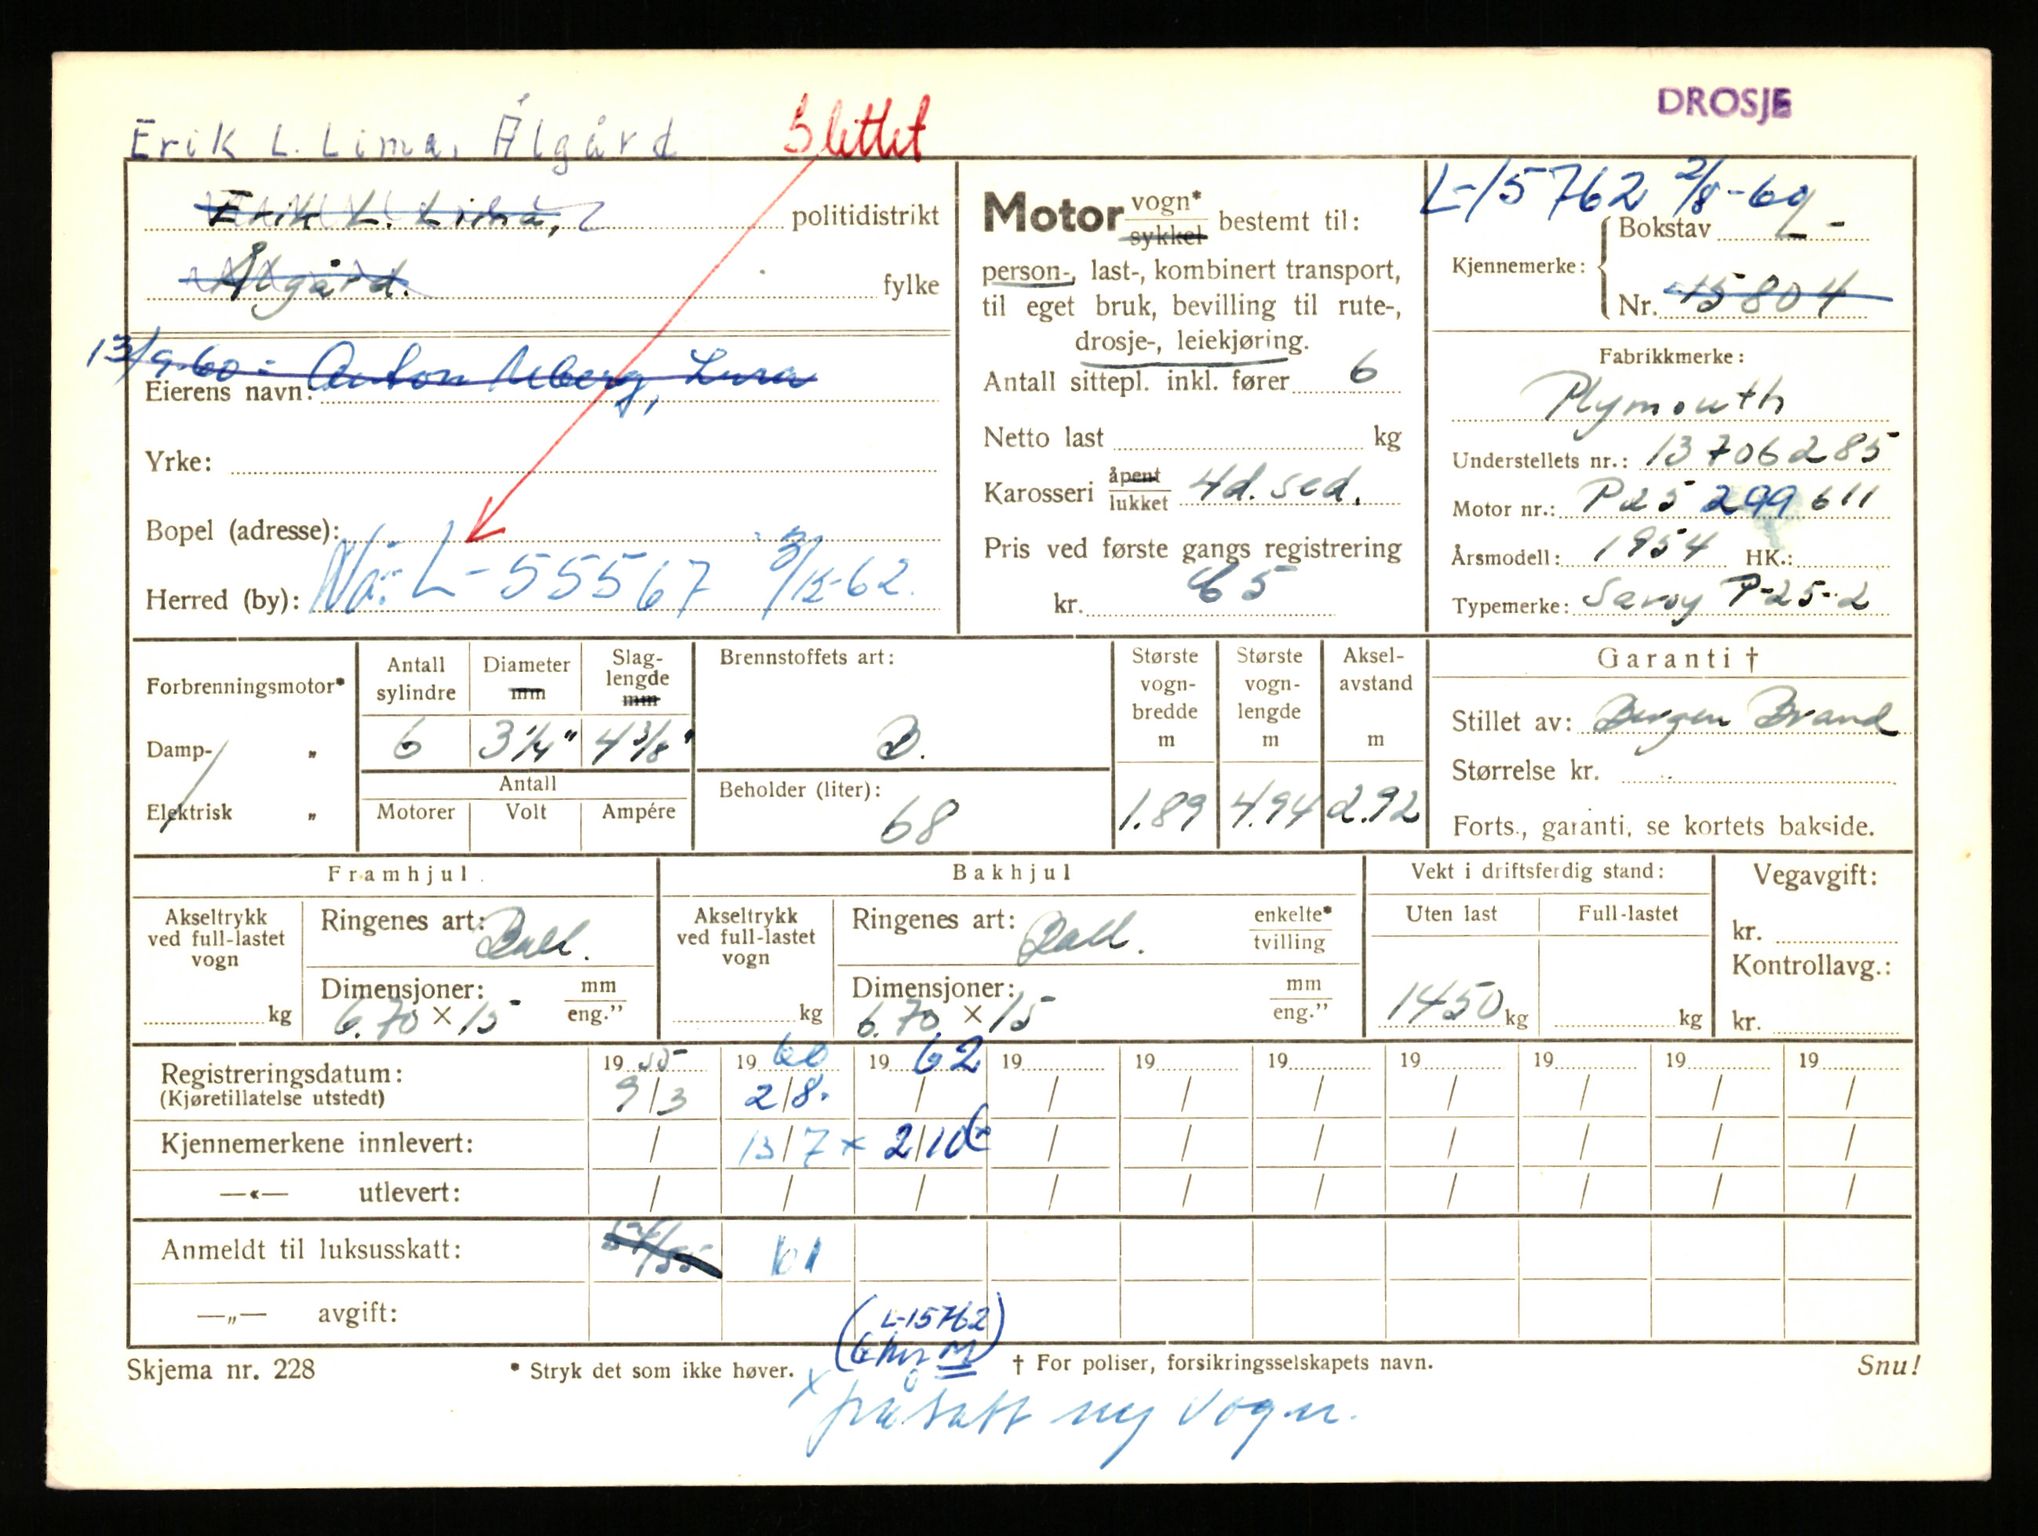 DROSJE
Erik L. Lima, Ålgård Slettet
Erik L. Lima, politidistrikt
Ålgård. fylke
13/9-60 - Anton Uberg, Lura
Eierens navn:
Yrke:
Bopel (adresse):
Herred (by): Nå: L-55567 3/12-62.
Motor vogn* sykkel bestemt til:
person-, last-, kombinert transport,
til eget bruk, bevilling til rute-,
drosje-, leiekjøring.
Antall sittepl. inkl. fører 6
Netto last kg
Karosseri åpent lukket 4d. sed.
Pris ved første gangs registrering
kr. 65
L-15762 2/8-60
Kjennemerke: Bokstav L-
Nr. 15804
Fabrikkmerke:
Plymouth
Understellets nr.: 13706285
Motor nr.: P25 299611
Årsmodell: 1954 HK.:
Typemerke: Savoy P-25-2
Forbrenningsmotor*
Damp- „
Elektrisk „
Antall sylindre 6
Diameter mm 3 1/4"
Slaglengde mm 4 3/8"
Antall
Motorer Volt Ampére
Brennstoffets art:
B.
Beholder (liter):
68
Største vogn-bredde m 1.89
Største vogn-lengde m 4.94
Aksel-avstand m 2.92
Garanti †
Stillet av: Bergen Brand
Størrelse kr.
Forts., garanti, se kortets bakside.
Framhjul
Akseltrykk ved full-lastet vogn kg
Ringenes art: Ball.
Dimensjoner: mm eng.”
6.70 × 15
Bakhjul
Akseltrykk ved full-lastet vogn kg
Ringenes art: Ball. enkelte* tvilling
Dimensjoner: mm eng.”
6.70 × 15
Vekt i driftsferdig stand:
Uten last Full-lastet
1450 kg kg
Vegavgift:
kr.
Kontrollavg.:
kr.
19 55 19 60 19 62 19 19 19 19 19 19 19
Registreringsdatum: 9/3 2/8. / / / / / / / /
(Kjøretillatelse utstedt)
Kjennemerkene innlevert: / 13/7 x 2/10 / / / / / / /
—«— utlevert: / / / / / / / / / /
Anmeldt til luksusskatt: 54/55 61
—„— avgift:
(L-15762)
Skjema nr. 228 * Stryk det som ikke høver. † For poliser, forsikringsselskapets navn. Snu!
x påsatt ny vogn.